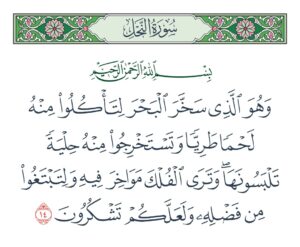 سُورَةُ النَّحْلِ
بِسْمِ اللَّهِ الرَّحْمَٰنِ الرَّحِيمِ
وَهُوَ ٱلَّذِى سَخَّرَ ٱلْبَحْرَ لِتَأْكُلُوا۟ مِنْهُ
لَحْمًا طَرِيًّا وَتَسْتَخْرِجُوا۟ مِنْهُ حِلْيَةً
تَلْبَسُونَهَا وَتَرَى ٱلْفُلْكَ مَوَاخِرَ فِيهِ وَلِتَبْتَغُوا۟
مِن فَضْلِهِۦ وَلَعَلَّكُمْ تَشْكُرُونَ ١٤